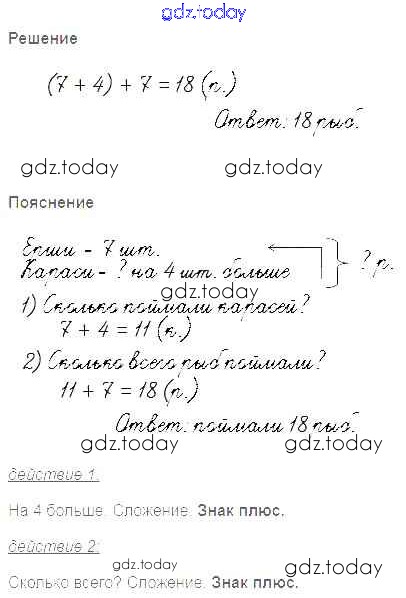 gdz.today
Решение
(7 + 4) + 7 = 18 (р.)
Ответ: 18 рыб.
gdz.today gdz.today
Пояснение
Ерши - 7 шт.
Караси - ? на 4 шт. больше
? р.
gdz.today
1) Сколько поймали карасей?
7 + 4 = 11 (к.)
2) Сколько всего рыб поймали?
11 + 7 = 18 (р.)
Ответ: поймали 18 рыб.
gdz.today gdz.today
действие 1:
На 4 больше. Сложение. Знак плюс.
действие 2:
gdz.today gdz.today
Сколько всего? Сложение. Знак плюс.